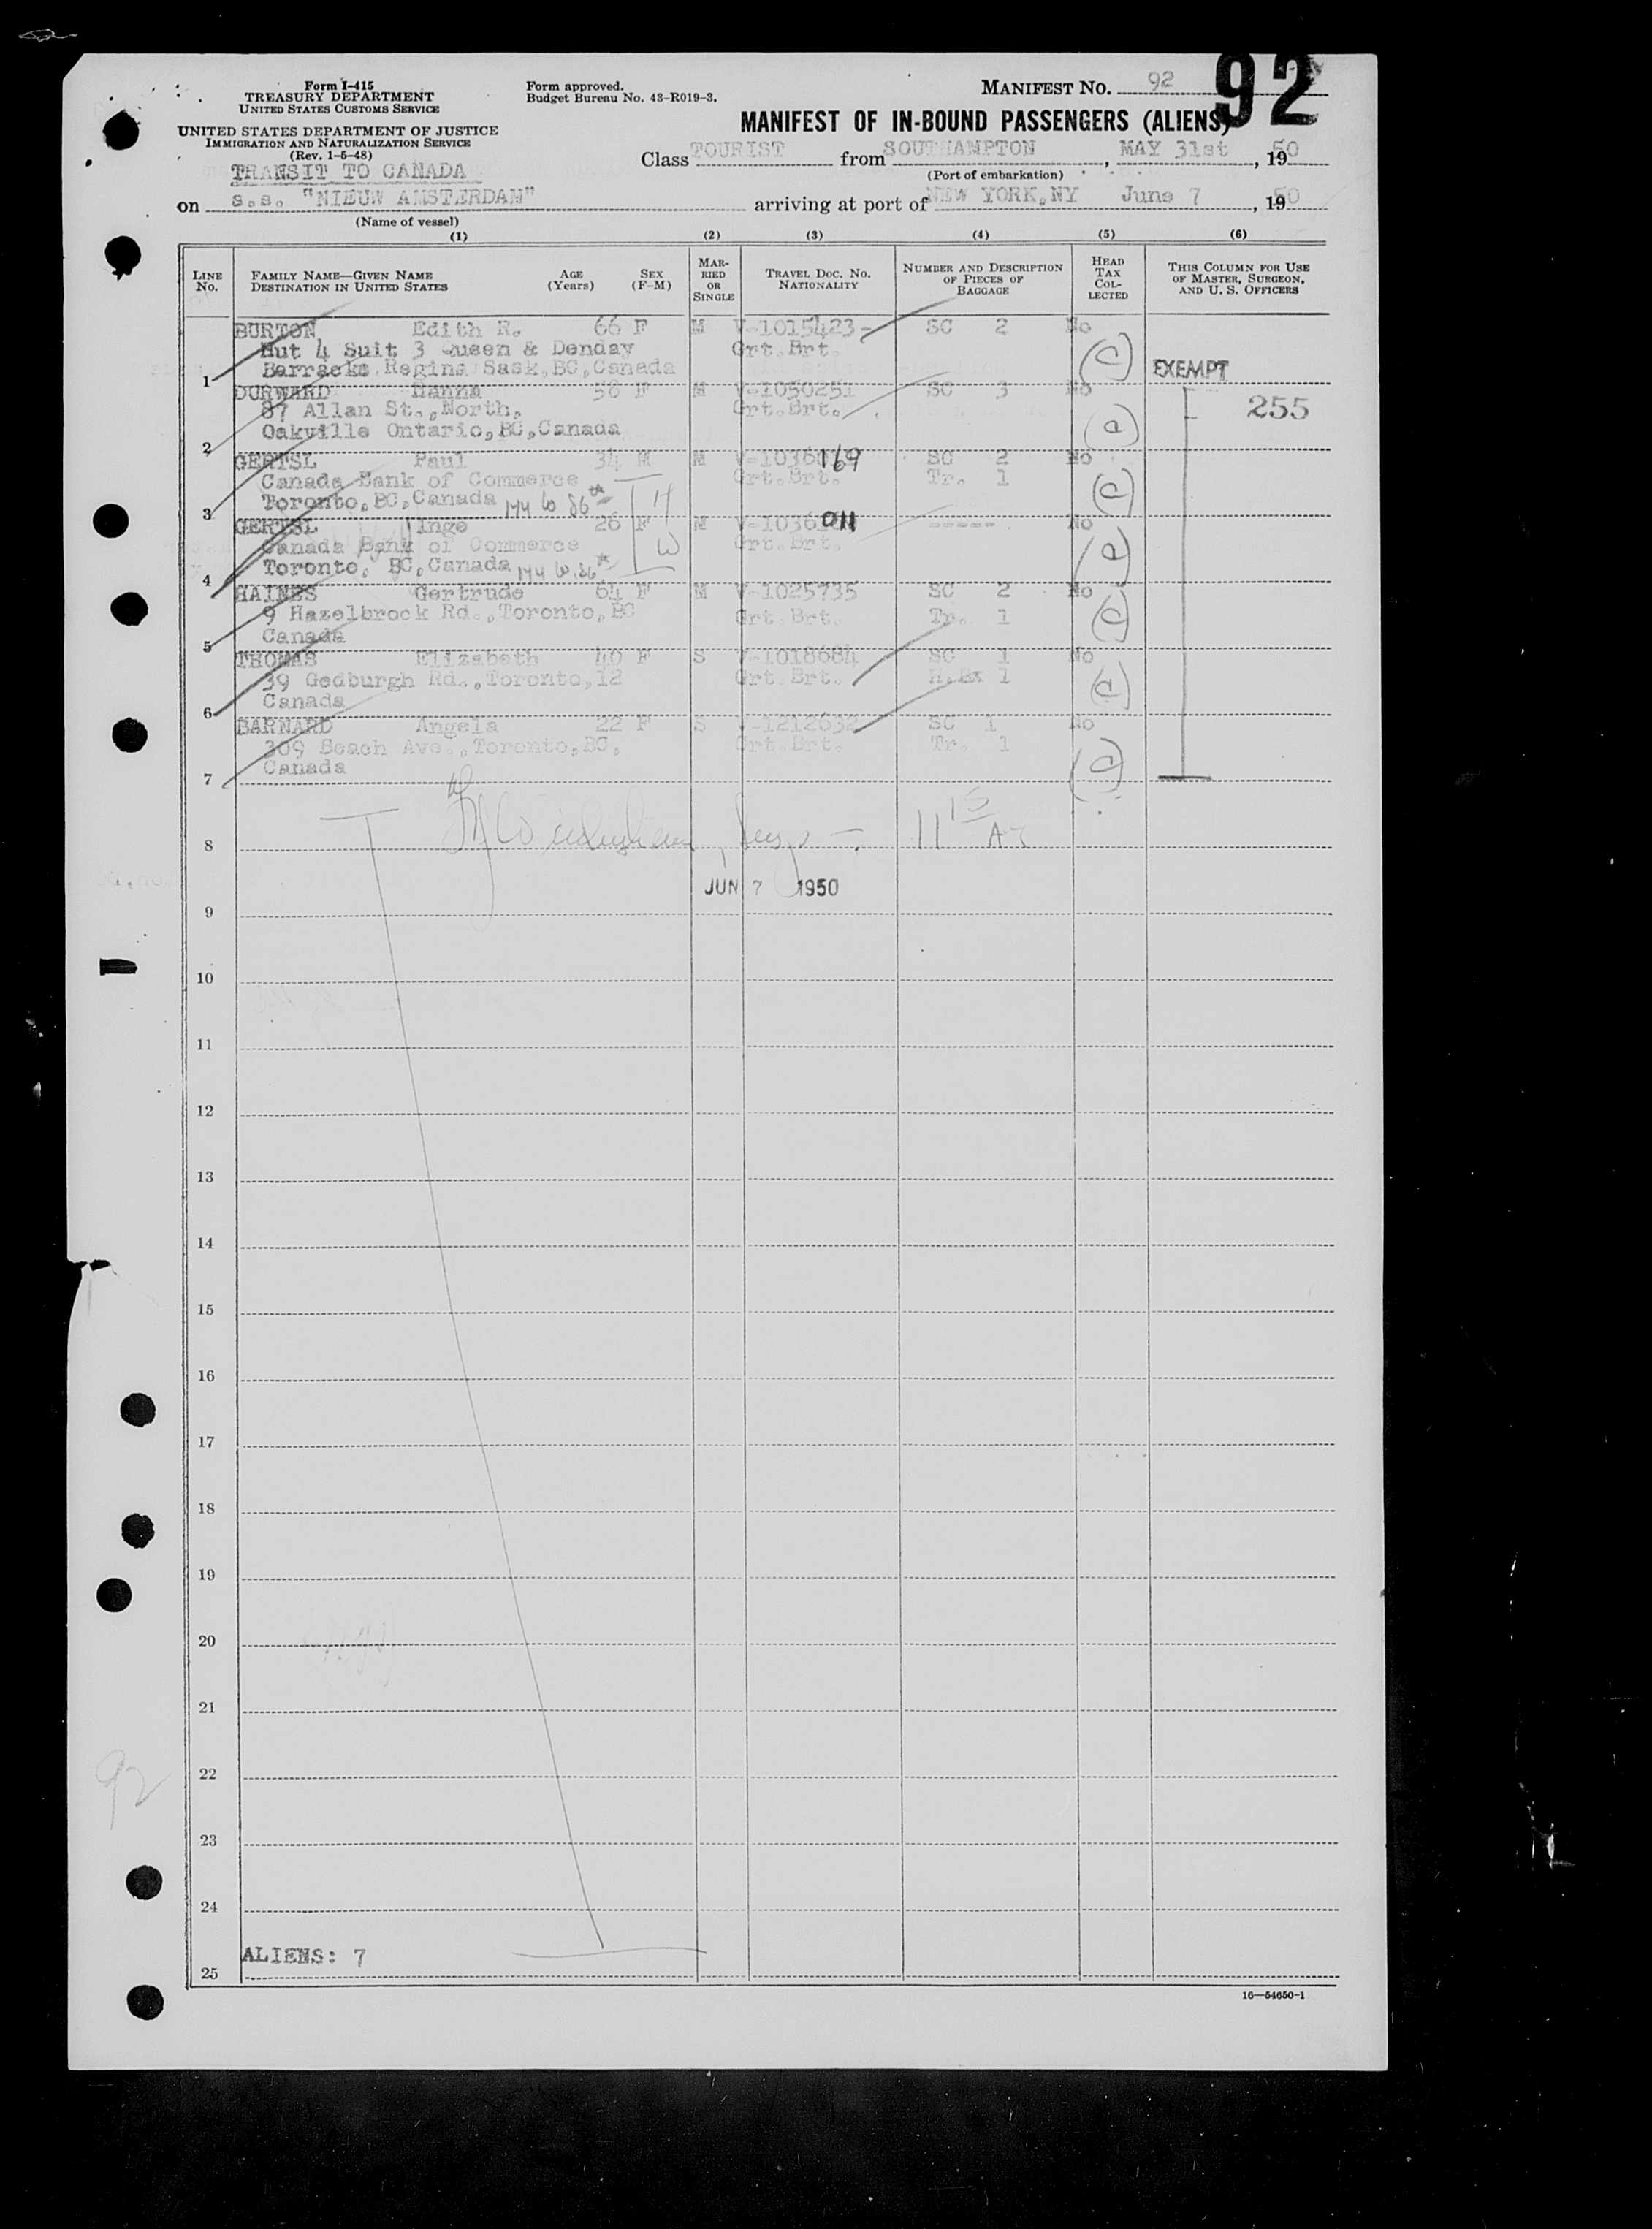 Form I-415
TREASURY DEPARTMENT
UNITED STATES CUSTOMS SERVICE
UNITED STATES DEPARTMENT OF JUSTICE
IMMIGRATION AND NATURALIZATION SERVICE
(Rev. 1-5-48)
Form approved.
Budget Bureau No. 43-R019-3.
MANIFEST NO. 92
92
MANIFEST OF IN-BOUND PASSENGERS (ALIENS)
TRANSIT TO CANADA
Class TOURIST from SOUTHAMPTON, MAY 31st, 1950
(Port of embarkation)
on s.s. "NIEUW AMSTERDAM" arriving at port of NEW YORK,NY June 7, 1950
(Name of vessel)
(1) (2) (3) (4) (5) (6)
LINE No. FAMILY NAME—GIVEN NAME DESTINATION IN UNITED STATES AGE (Years) SEX (F-M) MARRIED OR SINGLE TRAVEL DOC. NO. NATIONALITY NUMBER AND DESCRIPTION OF PIECES OF BAGGAGE HEAD TAX COLLECTED THIS COLUMN FOR USE OF MASTER, SURGEON, AND U. S. OFFICERS
BURTON Edith R. 66 F M V-1015423 SC 2 No
Hut 4 Suit 3 Queen & Denday Grt.Brt.
1 Barracks Regina Sask,BC,Canada EXEMPT
DURWARD Hanna 58 F M V-1050251 SC 3 No
87 Allan St.,North, Grt.Brt. 255
2 Oakville Ontario,BC,Canada
GERTSL Paul 34 M M V-1036169 SC 2 No
Canada Bank of Commerce Grt.Brt. Tr. 1
3 Toronto,BC,Canada
GERTSL Inge 26 F M V-1036011 ----- No
Canada Bank of Commerce Grt.Brt.
4 Toronto, BC,Canada
H
W
HAINES Gertrude 64 F M V-1025735 SC 2 No
9 Hazelbrock Rd.,Toronto,BC Grt.Brt. Tr. 1
5 Canada
THOMAS Elizabeth 40 F S V-1018684 SC 1 No
39 Gedburgh Rd.,Toronto,12 Grt.Brt. H.Bx 1
6 Canada
BARNARD Angela 22 F S V-1212632 SC 1 No
309 Beach Ave.,Toronto,BC, Grt.Brt. Tr. 1
7 Canada
8 11 15
JUN 7 1950
9
10
11
12
13
14
15
16
17
18
19
20
21
22
92
23
24
ALIENS: 7
25
16—54650-1